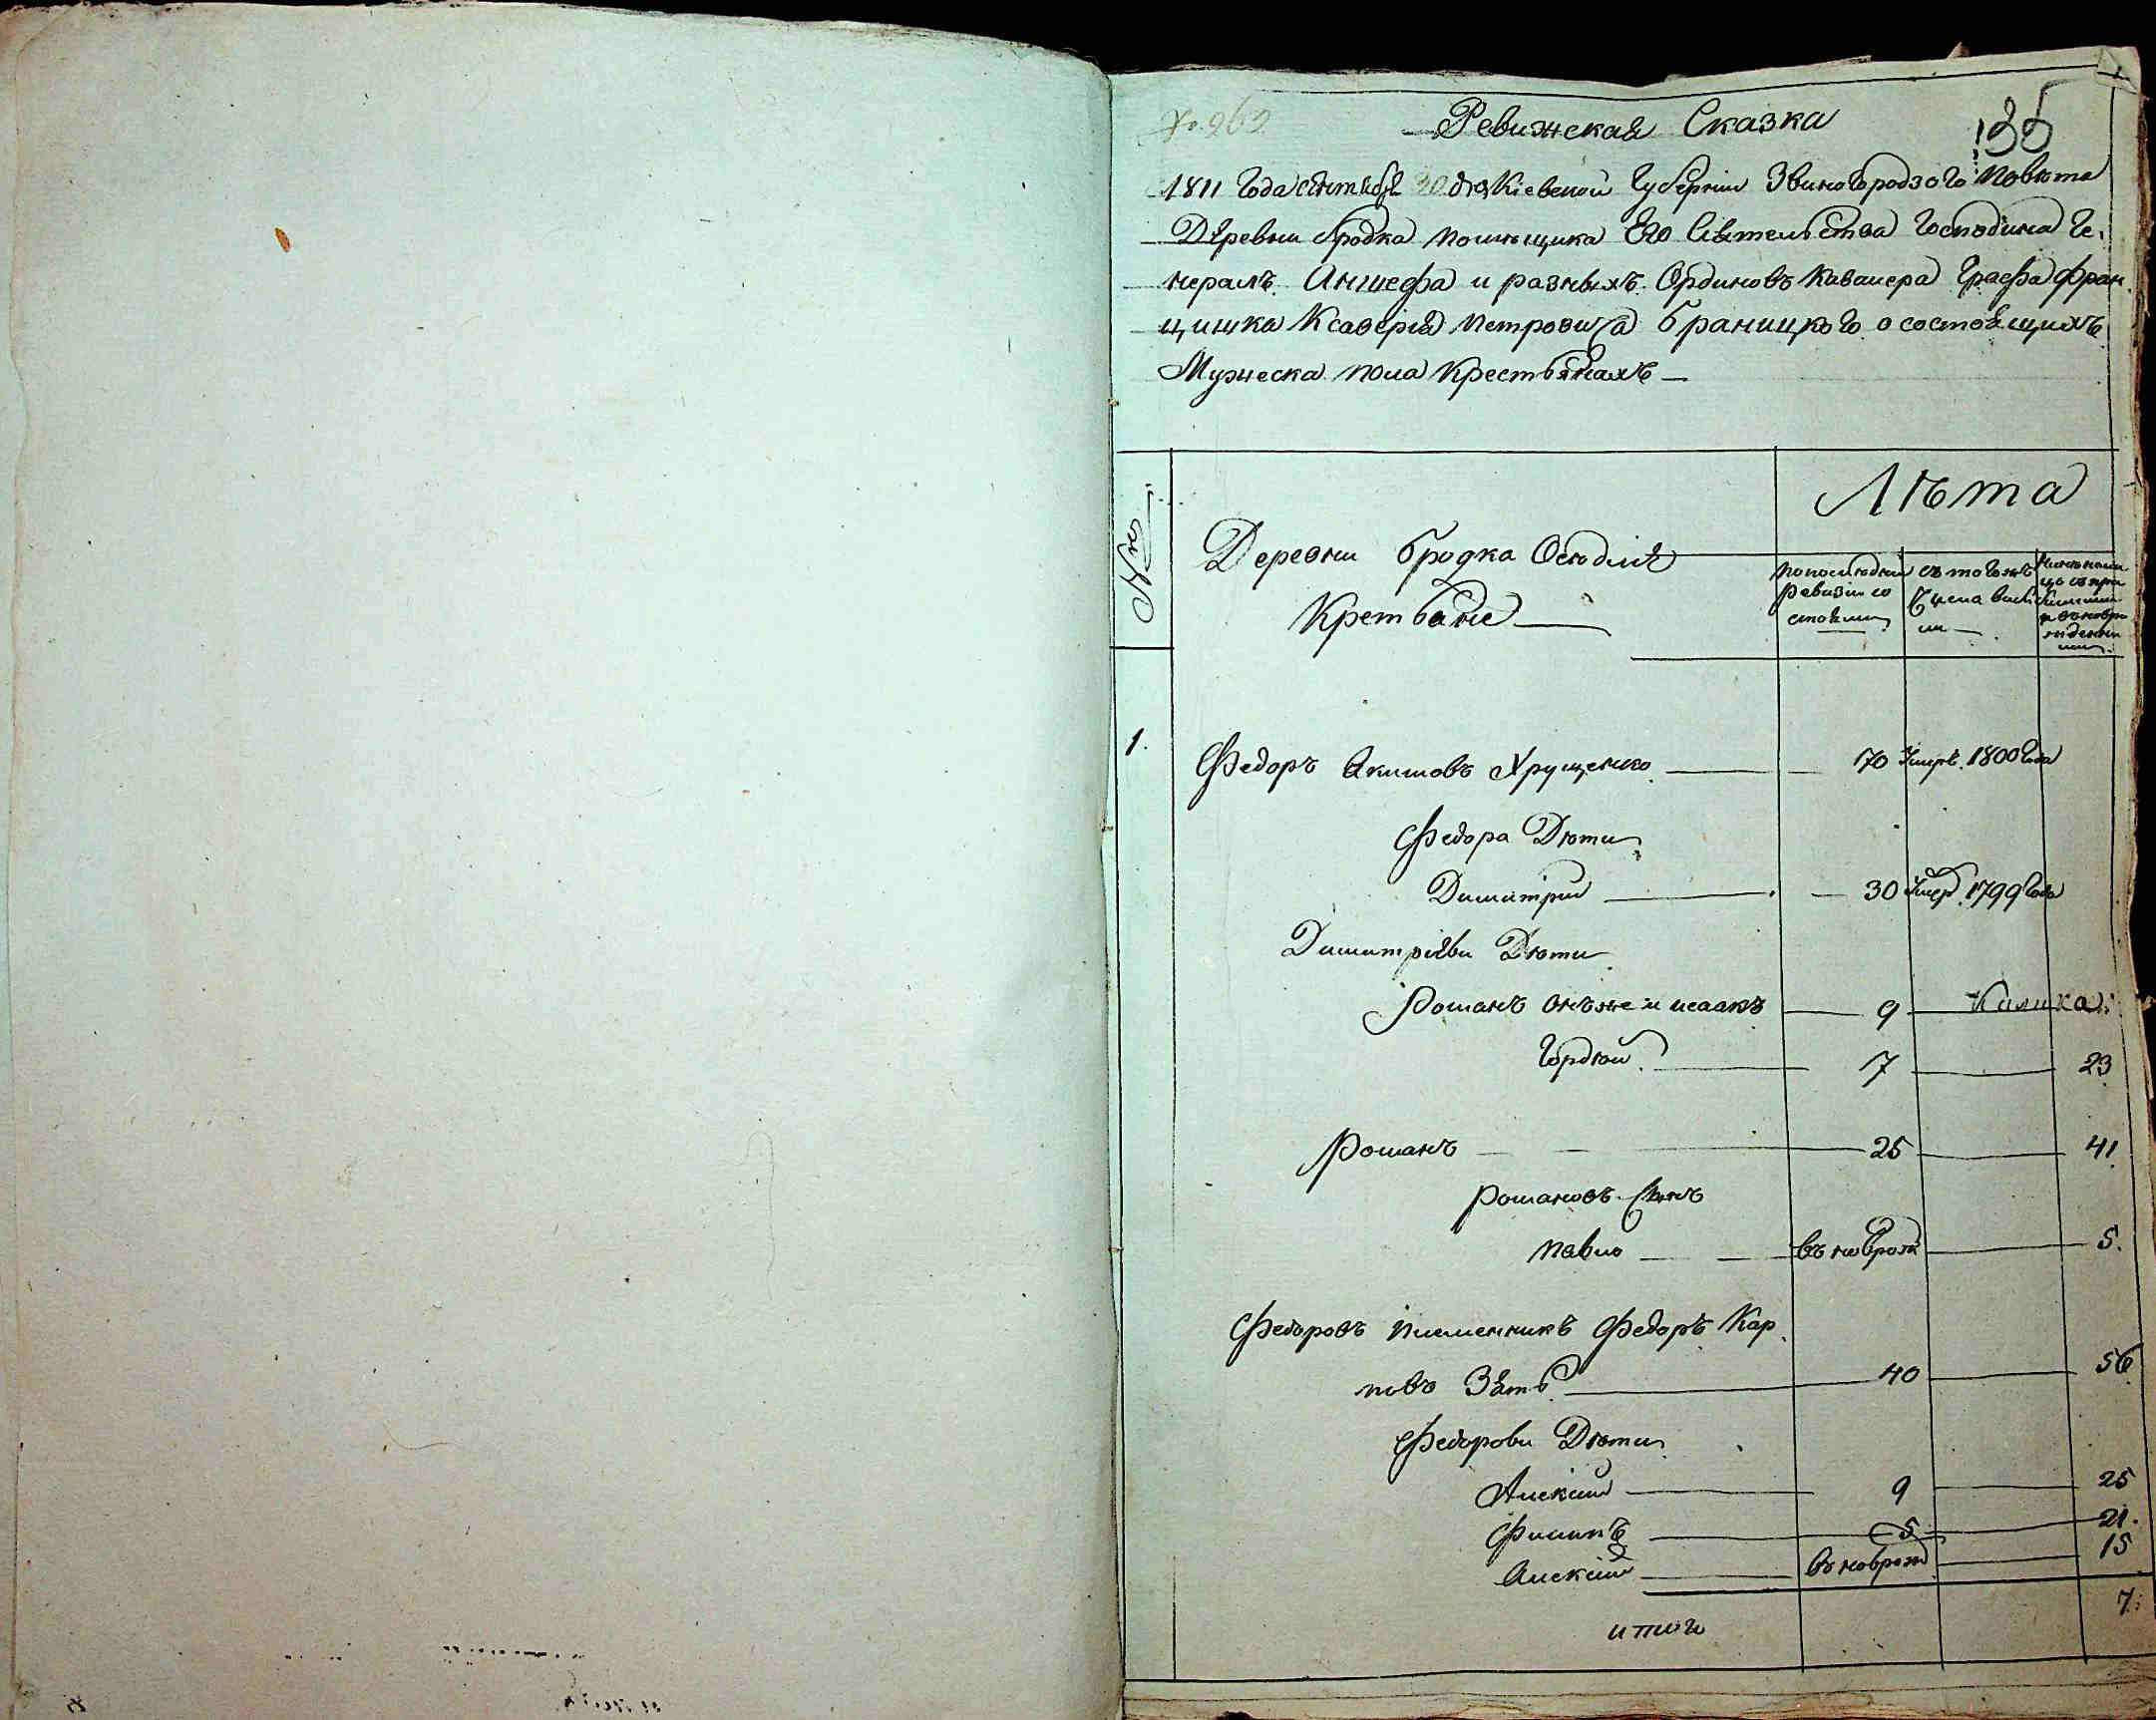 Ревижская Сказка
135
1811 Года Сентября 30 дня Кіевской Губерніи Звиногродзого Повѣта
Деревни Бродка помѣщика Его Сіятельства Господина Ге-
нералъ Аншефа и разныхъ Ординовъ Кавалера Графа Фран-
цишка Ксаверія Петровича Браницкого о состоящихъ
Мужеска пола Крестьянахъ —
Лѣта
Деревни Бродка Осѣдлія
Кретьяне —
попослѣдней
ревизіи со
стояли
съ того
числа выбы
ли —
1.
Федоръ Якимовъ Хрущенко — 70 Умръ. 1800 Года
Федора Дѣти
Димитрій — 30 Умер. 1799 Года
Димитріяви Дѣти
Романъ онъже и исаакъ — 9 — Калика.
Гордѣй — 7 — 23
Романъ — 25 — 41
Романовъ Сынъ
Павло — въ новорож — 5.
Федоровъ племенникъ Федоръ Кар-
повъ Зять — 40 — 56
Федорови Дѣти
Алексій — 9 — 25
Филипъ — 5 — 21.
Алексій — въ новрож — 15
итого 7.